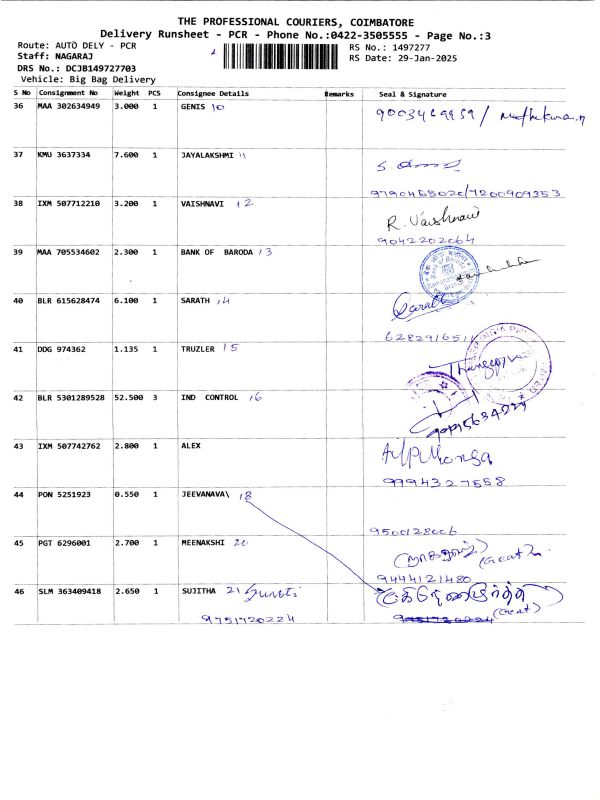 THE PROFESSIONAL COURIERS, COIMBATORE
Delivery Runsheet - PCR - Phone No.:0422-3505555 - Page No.:3
Route: AUTO DELY - PCR RS No.: 1497277
Staff: NAGARAJ RS Date: 29-Jan-2025
DRS No.: DCJB149727703
Vehicle: Big Bag Delivery
S No Consignment No Weight PCS Consignee Details Remarks Seal & Signature
36 MAA 302634949 3.000 1 GENIS 10
37 KMU 3637334 7.600 1 JAYALAKSHMI 11
9790455020/7200909353
38 IXM 507712210 3.200 1 VAISHNAVI 12 R. Vaishnavi
9042202064
39 MAA 705534602 2.300 1 BANK OF BARODA 13
40 BLR 615628474 6.100 1 SARATH 14 Sarath
6282916511
41 DDG 974362 1.135 1 TRUZLER 15
42 BLR 5301289528 52.500 3 IND CONTROL 16
43 IXM 507742762 2.800 1 ALEX
9994327558
44 PON 5251923 0.550 1 JEEVANAVA\ 18
9500128006
45 PGT 6296001 2.700 1 MEENAKSHI 20
9444121480
46 SLM 363409418 2.650 1 SUJITHA 21
9751720224